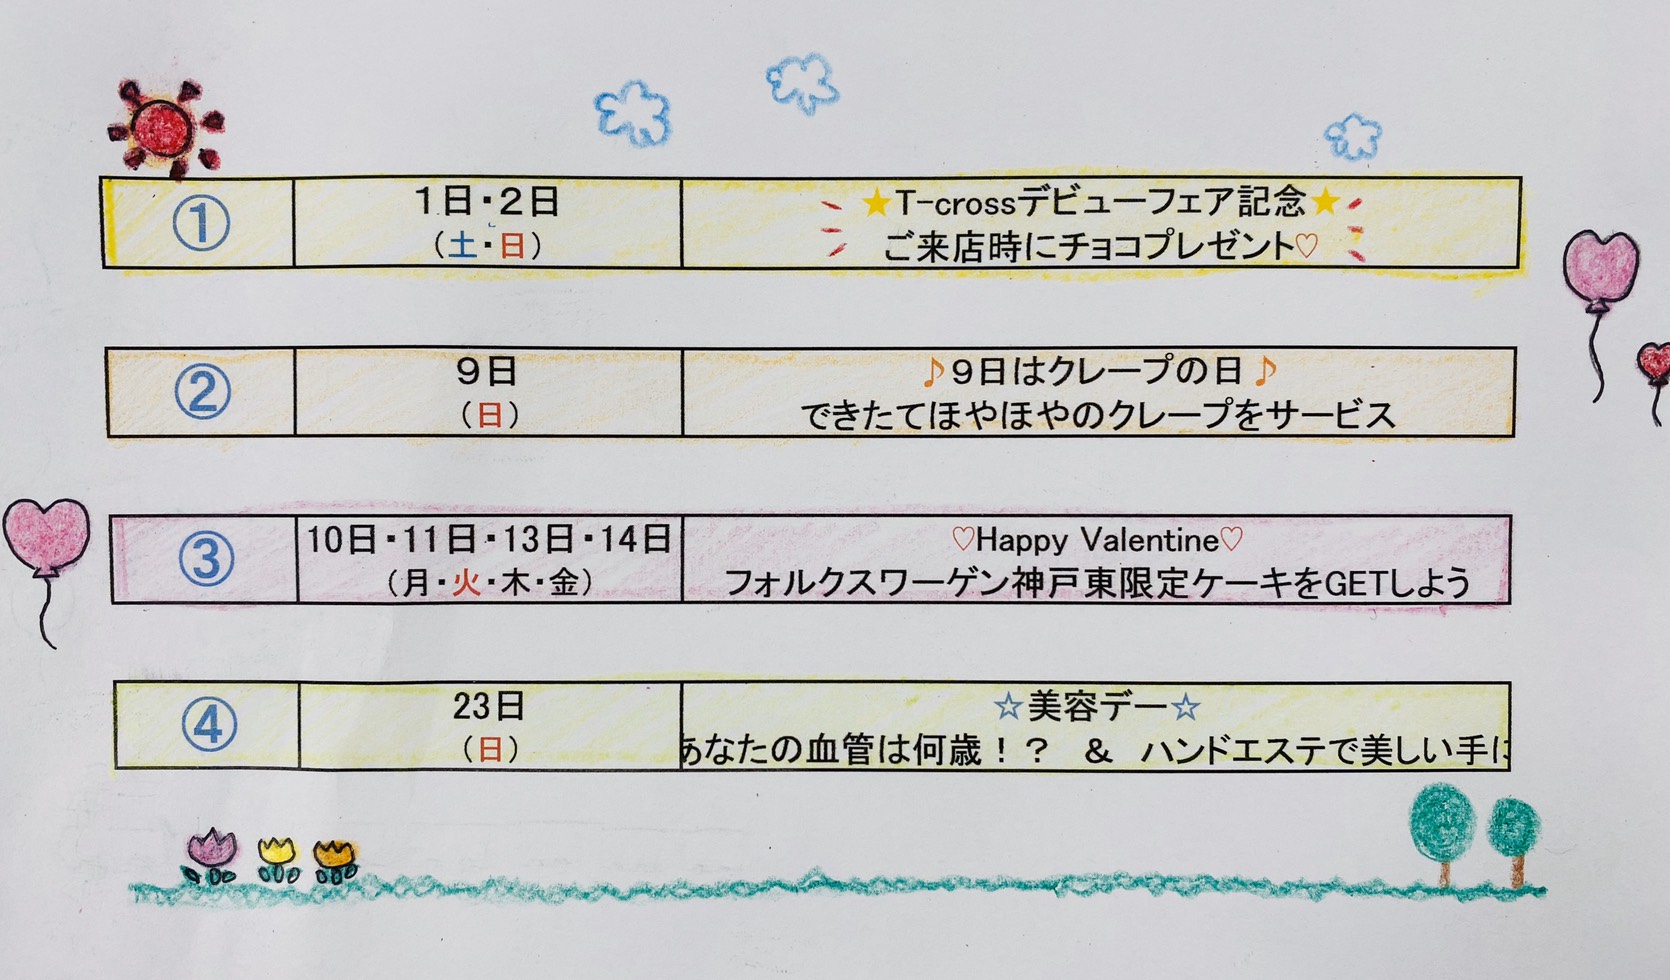 ①
1日・2日
(土・日)
★T-crossデビューフェア記念★
ご来店時にチョコプレゼント♡
②
9日
(日)
♪9日はクレープの日♪
できたてほやほやのクレープをサービス
③
10日・11日・13日・14日
(月・火・木・金)
♡Happy Valentine♡
フォルクスワーゲン神戸東限定ケーキをGETしよう
④
23日
(日)
☆美容デー☆
あなたの血管は何歳！？　＆　ハンドエステで美しい手に